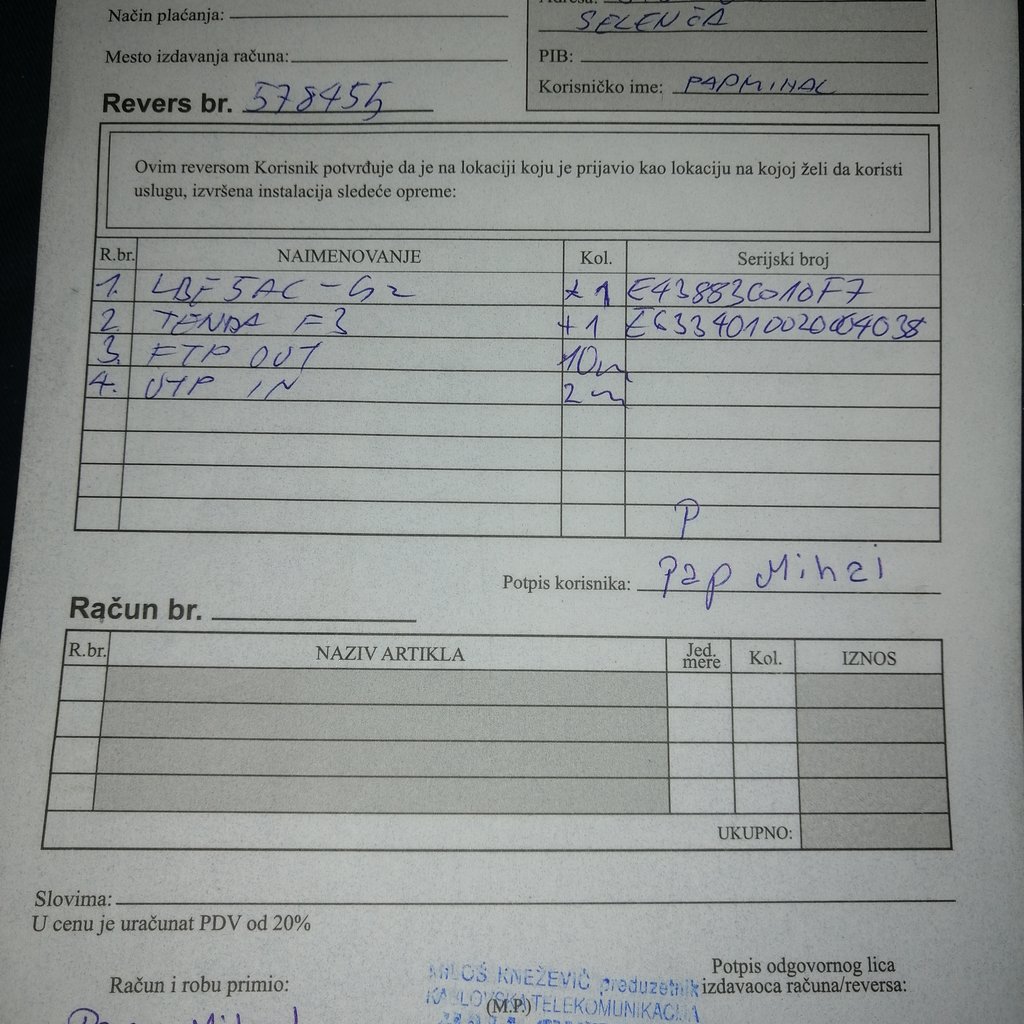 Način plaćanja:
SELENČA
Mesto izdavanja računa:
PIB:
Korisničko ime: PAPMIHAL
Revers br. 578455
Ovim reversom Korisnik potvrđuje da je na lokaciji koju je prijavio kao lokaciju na kojoj želi da koristi
uslugu, izvršena instalacija sledeće opreme:
R.br. NAIMENOVANJE Kol. Serijski broj
1. LBE5AC-G2 +1 E43883C010F7
2. TENDA F3 +1
3. FTP OUT 10m
4. UTP IN 2m
P
Potpis korisnika: Pap Mihal
Račun br.
R.br. NAZIV ARTIKLA Jed. mere Kol. IZNOS
UKUPNO:
Slovima:
U cenu je uračunat PDV od 20%
Potpis odgovornog lica
Račun i robu primio: MILOŠ KNEŽEVIĆ preduzetnik izdavaoca računa/reversa:
(M.P.) TELEKOMUNIKACIJA